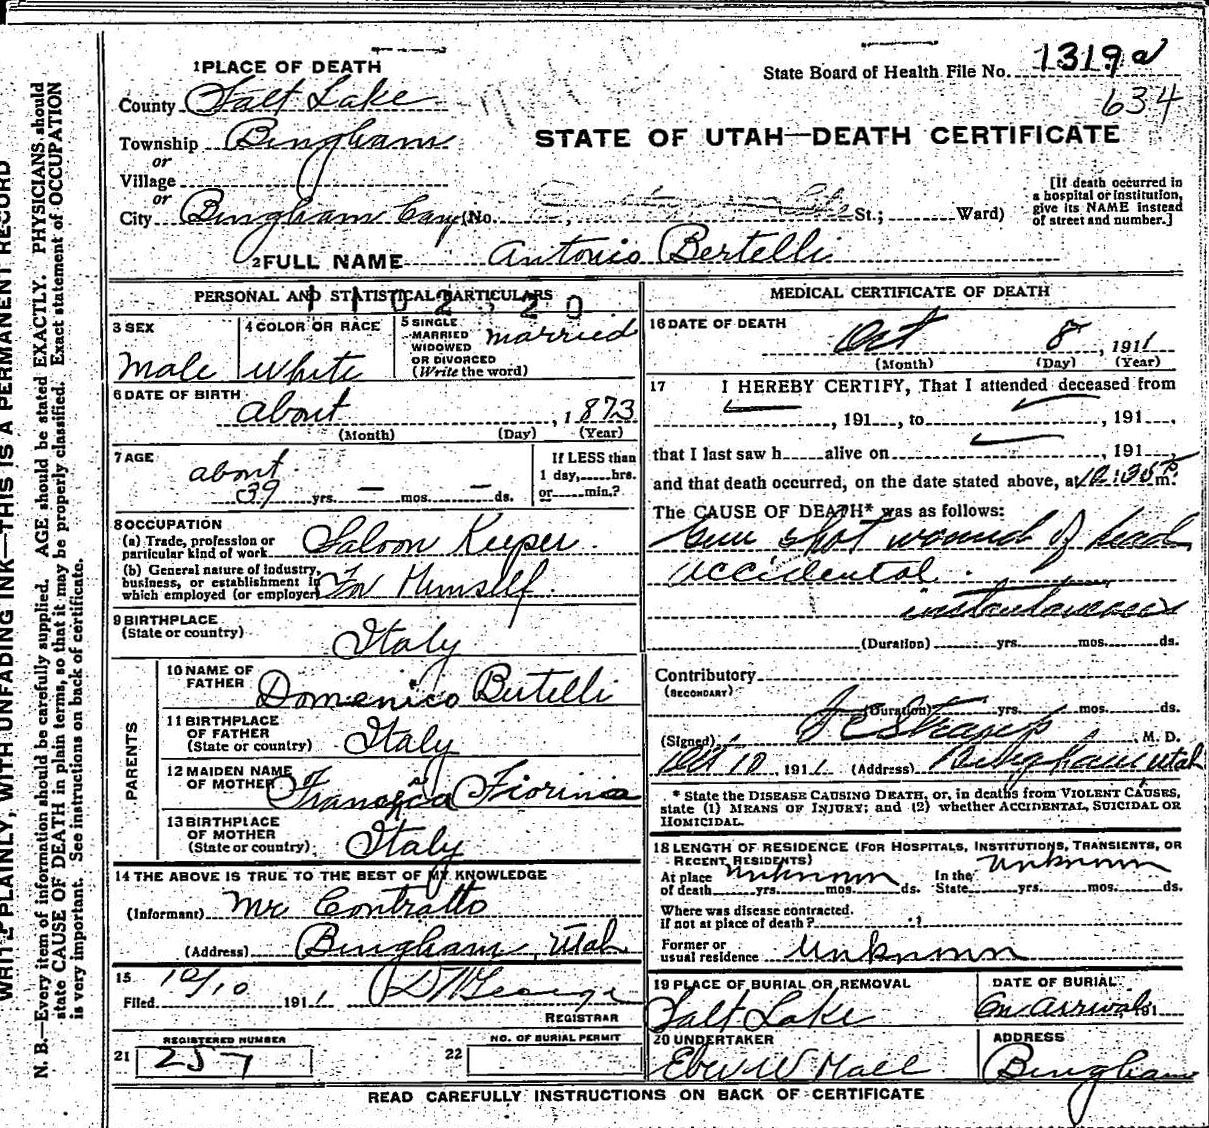 1 PLACE OF DEATH
State Board of Health File No. 1319a
634
County Salt Lake
Township Bingham
or
Village
or
City Bingham Cany (No. St.; Ward)
STATE OF UTAH—DEATH CERTIFICATE
[If death occurred in
a hospital or institution,
give its NAME instead
of street and number.]
2 FULL NAME Antonio Bertelli
PERSONAL AND STATISTICAL PARTICULARS
110220
3 SEX
Male
4 COLOR OR RACE
White
5 SINGLE
MARRIED
WIDOWED
OR DIVORCED
(Write the word)
married
6 DATE OF BIRTH
about , 1873
(Month) (Day) (Year)
7 AGE
about
39 yrs. — mos. — ds.
If LESS than
1 day, hrs.
or min.?
8 OCCUPATION
(a) Trade, profession or
particular kind of work Saloon Keeper
(b) General nature of industry,
business, or establishment in
which employed (or employer) For Himself
9 BIRTHPLACE
(State or country)
Italy
PARENTS
10 NAME OF
FATHER Domenico Butelli
11 BIRTHPLACE
OF FATHER
(State or country) Italy
12 MAIDEN NAME
OF MOTHER Francesca Fiorinia
13 BIRTHPLACE
OF MOTHER
(State or country) Italy
14 THE ABOVE IS TRUE TO THE BEST OF MY KNOWLEDGE
(Informant) Mr Contratto
(Address) Bingham, Utah
15
Filed 10/10 1911 George
REGISTRAR
21 REGISTERED NUMBER
257
22 NO. OF BURIAL PERMIT
MEDICAL CERTIFICATE OF DEATH
16 DATE OF DEATH
Oct 8, 1911
(Month) (Day) (Year)
17 I HEREBY CERTIFY, That I attended deceased from
, 191 , to , 191 ,
that I last saw h alive on , 191
and that death occurred, on the date stated above, at 12:35 P m.
The CAUSE OF DEATH* was as follows:
Gun shot wound of head
accidental.
instantaneous
(Duration) yrs. mos. ds.
Contributory
(SECONDARY)
(Duration) yrs. mos. ds.
(Signed) M. D.
Oct 10 1911 (Address) Bingham Utah
* State the DISEASE CAUSING DEATH, or, in deaths from VIOLENT CAUSES,
state (1) MEANS OF INJURY; and (2) whether ACCIDENTAL, SUICIDAL OR
HOMICIDAL.
18 LENGTH OF RESIDENCE (FOR HOSPITALS, INSTITUTIONS, TRANSIENTS, OR
RECENT RESIDENTS)
At place
of death unknown yrs. mos. ds.
In the
State unknown yrs. mos. ds.
Where was disease contracted.
if not at place of death?
Former or
usual residence unknown
19 PLACE OF BURIAL OR REMOVAL
Salt Lake
DATE OF BURIAL
On arrival, 191
20 UNDERTAKER
Eber W Hall
ADDRESS
Bingham
READ CAREFULLY INSTRUCTIONS ON BACK OF CERTIFICATE
WRITE PLAINLY, WITH UNFADING INK—THIS IS A PERMANENT RECORD
N. B.—Every item of information should be carefully supplied. AGE should be stated EXACTLY. PHYSICIANS should
state CAUSE OF DEATH in plain terms, so that it may be properly classified. Exact statement of OCCUPATION
is very important. See instructions on back of certificate.